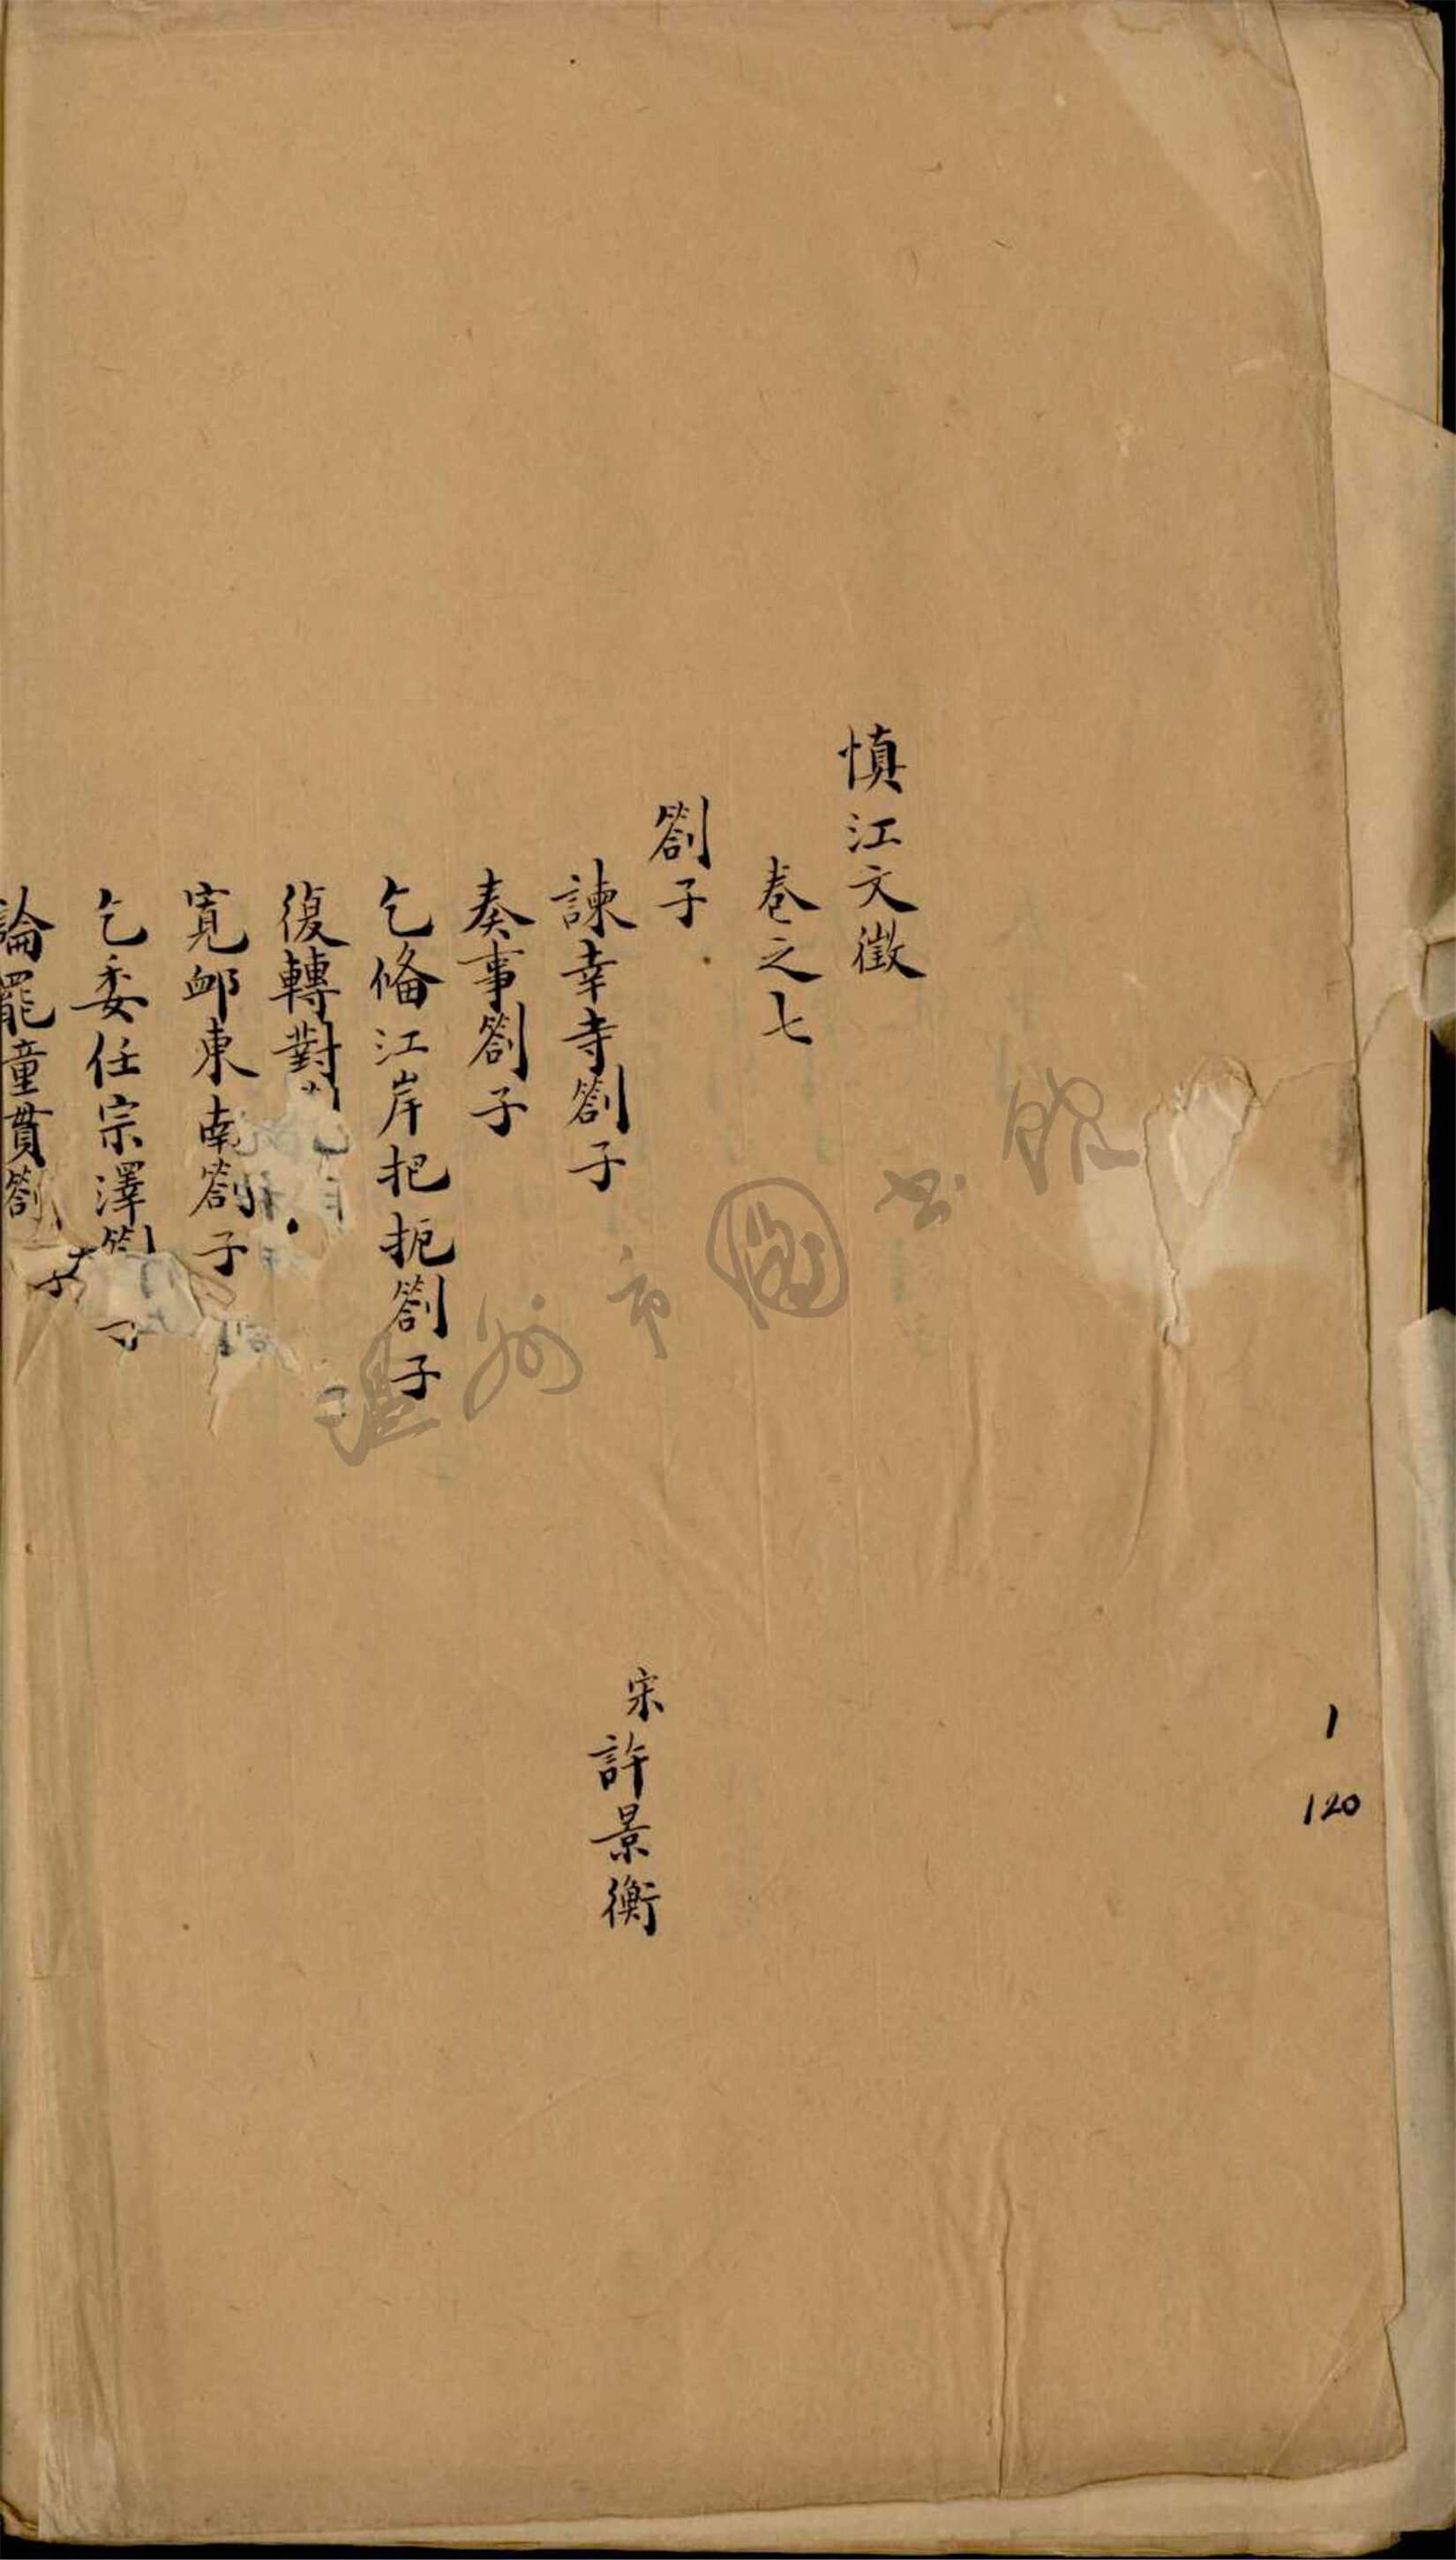 慎江文徵
卷之七
劄子
諫幸寺劄子
宋許景衡
奏事劄子
乞俻江岸把扼劄子
復轉對
寬卹東南劄子
乞委任宗澤劄子
論罷童貫劄子
溫州市圖書館
1
120